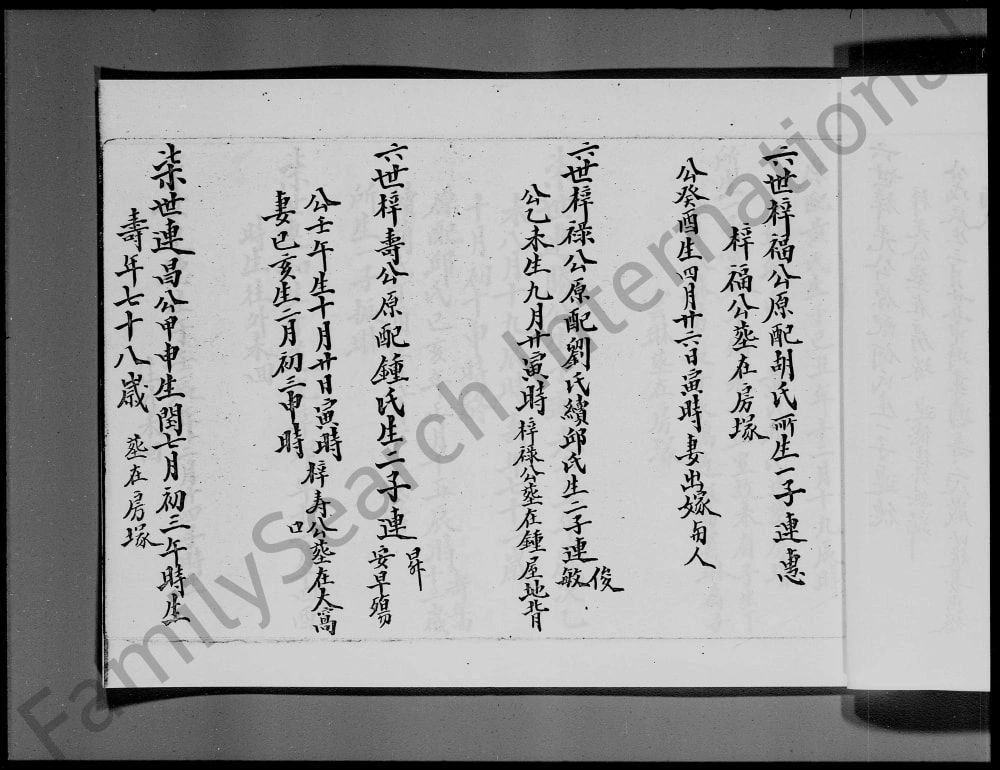 六世梓福公原配胡氏所生一子連惠
梓福公塟在房塚
公癸酉生四月廿六日寅時妻出嫁与人
六世梓祿公原配劉氏續邱氏生二子連俊敏
公乙未生九月廿寅時梓禄公塟在鍾屋地背
六世梓壽公原配鍾氏生二子連昇安早殤
公壬午生十月廿日寅時梓寿公塟在大窩口
妻已亥生二月初三申時
柒世連昌公甲申生閏七月初三午時生
壽年七十八歲 塟在房塚
FamilySearch International